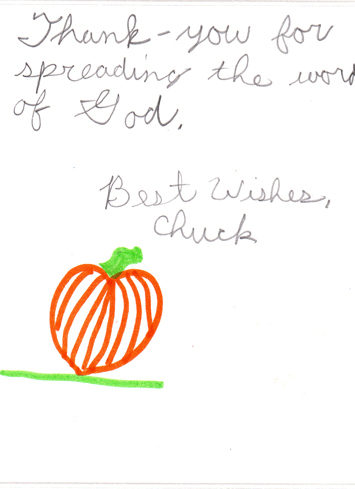 Thank-you for
spreading the word
of God.
Best Wishes,
Chuck